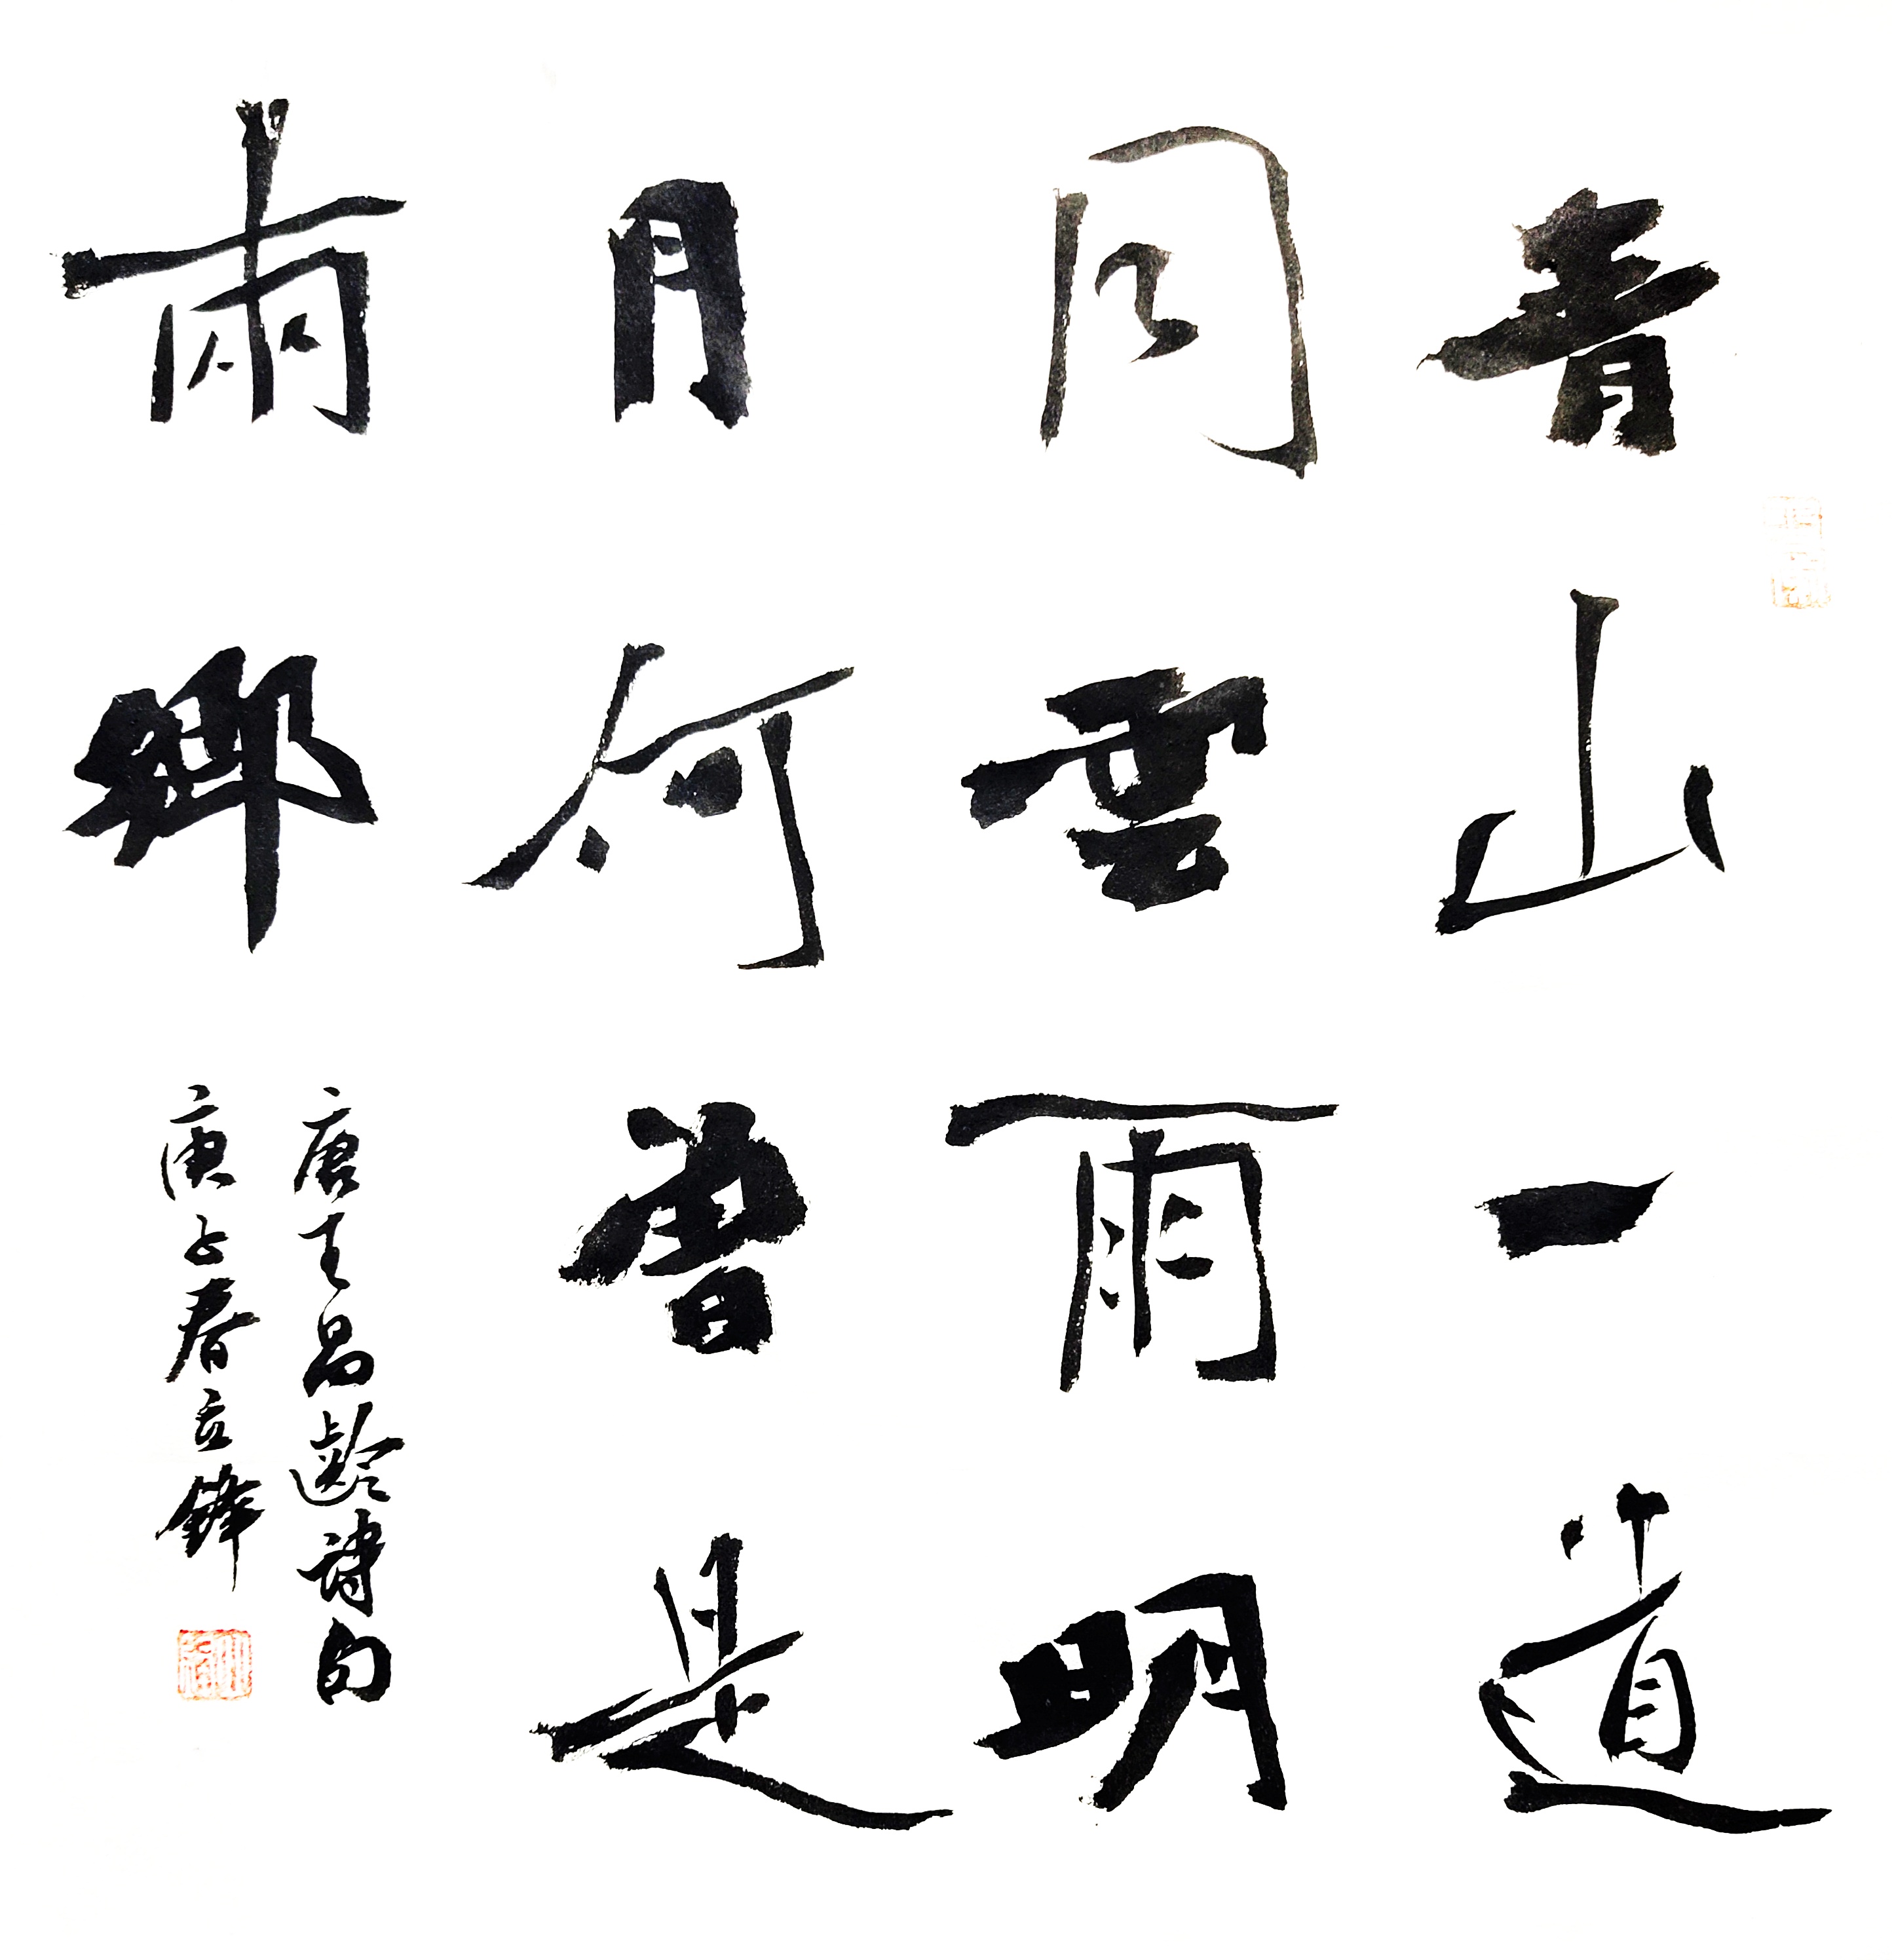 青山一道
同雲雨明
月何曾是
兩鄉
唐王昌齡詩句
庚子春立鋒